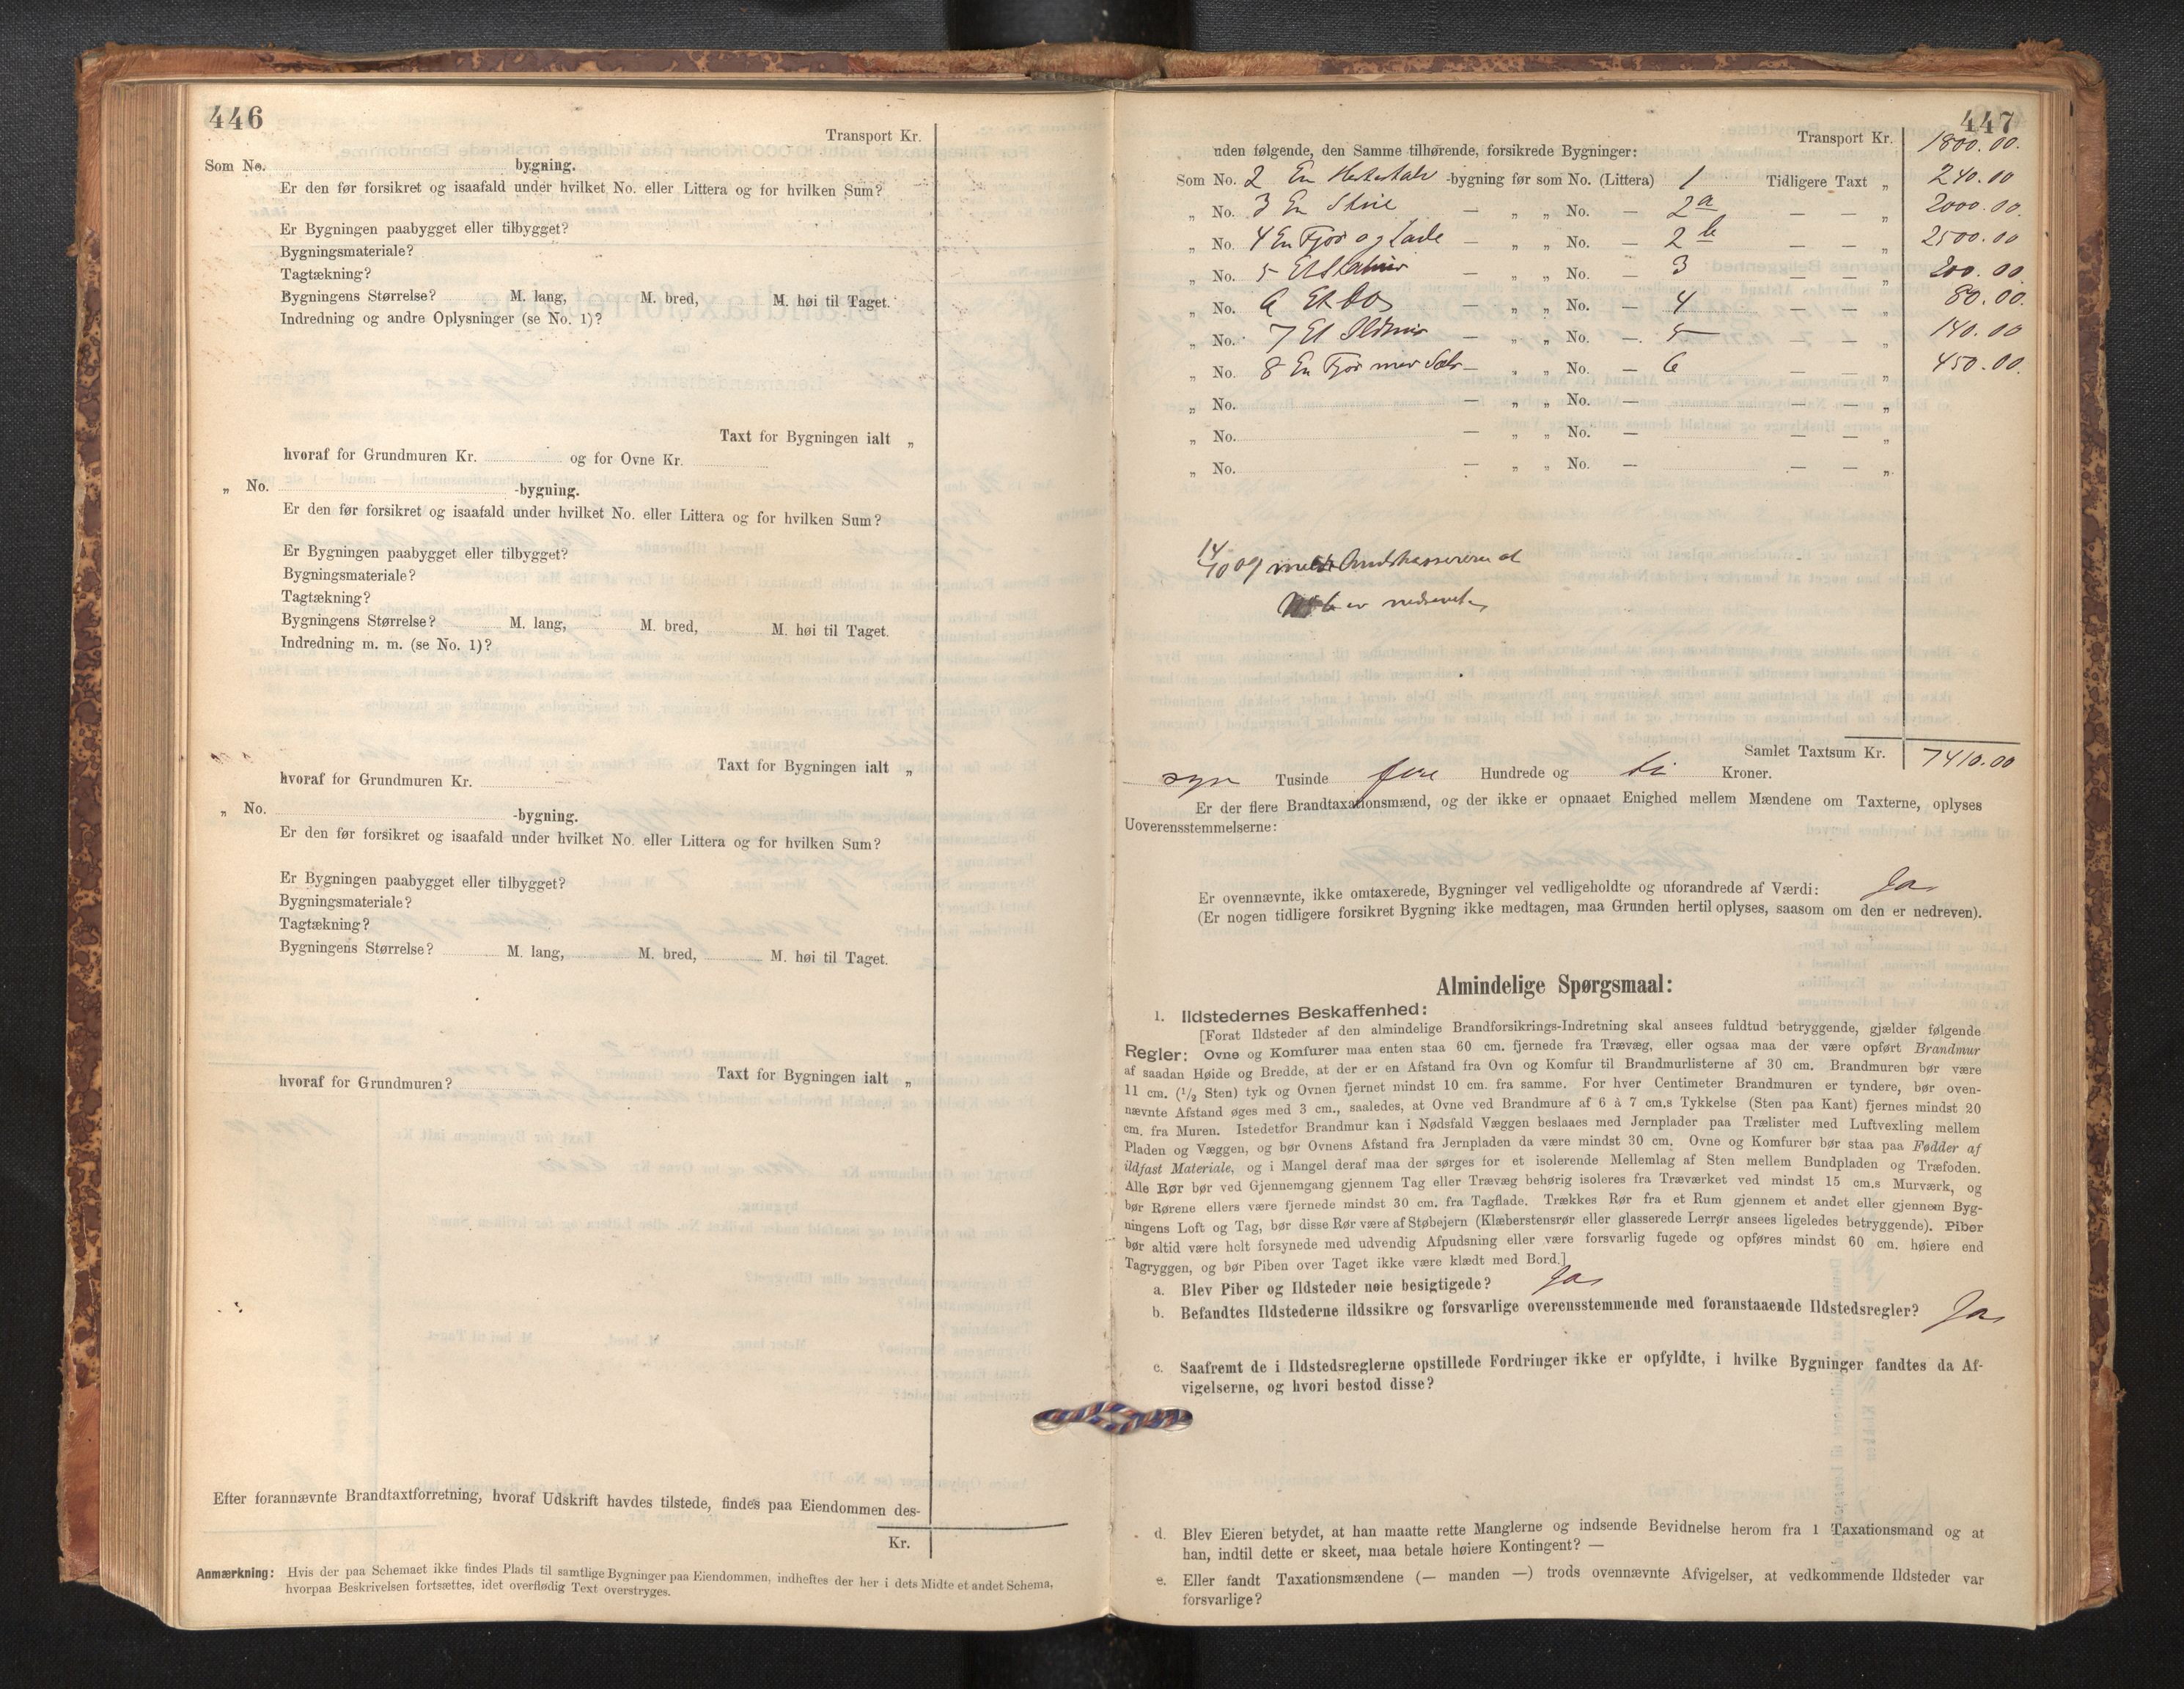 446
Transport Kr.
Som No. bygning.
Er den før forsikret og isaafald under hvilket No. eller Littera og for hvilken Sum?
Er Bygningen paabygget eller tilbygget?
Bygningsmateriale?
Tagtækning?
Bygningens Størrelse? M. lang, M. bred, M. høi til Taget.
Indredning og andre Oplysninger (se No. 1)?
Taxt for Bygningen ialt „
hvoraf for Grundmuren Kr. og for Ovne Kr.
„ No. -bygning.
Er den før forsikret og isaafald under hvilket No. eller Littera og for hvilken Sum?
Er Bygningen paabygget eller tilbygget?
Bygningsmateriale?
Tagtækning?
Bygningens Størrelse? M. lang, M. bred, M. høi til Taget.
Indredning m. m. (se No. 1)?
Taxt for Bygningen ialt „
hvoraf for Grundmuren Kr.
„ No. -bygning.
Er den før forsikret og isaafald under hvilket No. eller Littera og for hvilken Sum?
Er Bygningen paabygget eller tilbygget?
Bygningsmateriale?
Tagtækning?
Bygningens Størrelse? M. lang, M. bred, M. høi til Taget.
Taxt for Bygningen ialt „
hvoraf for Grundmuren?
Efter forannævnte Brandtaxtforretning, hvoraf Udskrift havdes tilstede, findes paa Eiendommen des-
Kr.
Anmærkning: Hvis der paa Schemaet ikke findes Plads til samtlige Bygninger paa Eiendommen, indheftes der her i dets Midte et andet Schema,
hvorpaa Beskrivelsen fortsættes, idet overflødig Text overstryges.
447
Transport Kr. 1800.00.
uden følgende, den Samme tilhørende, forsikrede Bygninger:
Som No. 2 En -bygning før som No. (Littera) 1 Tidligere Taxt „ 240.00
„ No. 3 En — „ „ No. — 2a — — „ 2000.00.
„ No. 4 En Fjøs og Lade — „ „ No. — 2b — — „ 2500.00
„ No. 5 Et — „ „ No. — 3 — — „ 200.00
„ No. 6 Et — „ „ No. — 4 — — „ 80.00.
„ No. 7 Et Ildhus — „ „ No. — 5 — — „ 140.00
„ No. 8 En Fjøs med — „ „ No. — 6 — — „ 450.00.
„ No. — „ „ No. — — — „
„ No. — „ „ No. — — — „
„ No. — „ „ No. — — — „
14/10 09
6 er nedrevet
Samlet Taxtsum Kr. 7410.00
syv Tusinde fire Hundrede og ti Kroner.
Er der flere Brandtaxationsmænd, og der ikke er opnaaet Enighed mellem Mændene om Taxterne, oplyses
Uoverensstemmelserne:
Er ovennævnte, ikke omtaxerede, Bygninger vel vedligeholdte og uforandrede af Værdi: Ja
(Er nogen tidligere forsikret Bygning ikke medtagen, maa Grunden hertil oplyses, saasom om den er nedreven).
Almindelige Spørgsmaal:
1. Ildstedernes Beskaffenhed:
[Forat Ildsteder af den almindelige Brandforsikrings-Indretning skal ansees fuldtud betryggende, gjælder følgende
Regler: Ovne og Komfurer maa enten staa 60 cm. fjernede fra Trævæg, eller ogsaa maa der være opført Brandmur
af saadan Høide og Bredde, at der er en Afstand fra Ovn og Komfur til Brandmurlisterne af 30 cm. Brandmuren bør være
11 cm. (1/2 Sten) tyk og Ovnen fjernet mindst 10 cm. fra samme. For hver Centimeter Brandmuren er tyndere, bør oven-
nævnte Afstand øges med 3 cm., saaledes, at Ovne ved Brandmure af 6 à 7 cm.s Tykkelse (Sten paa Kant) fjernes mindst 20
cm. fra Muren. Istedetfor Brandmur kan i Nødsfald Væggen beslaaes med Jernplader paa Trælister med Luftvexling mellem
Pladen og Væggen, og bør Ovnens Afstand fra Jernpladen da være mindst 30 cm. Ovne og Komfurer bør staa paa Fødder af
ildfast Materiale, og i Mangel deraf maa der sørges for et isolerende Mellemlag af Sten mellem Bundpladen og Træfoden.
Alle Rør bør ved Gjennemgang gjennem Tag eller Trævæg behørig isoleres fra Træværket ved mindst 15 cm.s Murværk, og
bør Rørene ellers være fjernede mindst 30 cm. fra Tagflade. Trækkes Rør fra et Rum gjennem et andet eller gjennem Byg-
ningens Loft og Tag, bør disse Rør være af Støbejern (Klæberstensrør eller glasserede Lerrør ansees ligeledes betryggende). Piber
bør altid være holt forsynede med udvendig Afpudsning eller være forsvarlig fugede og opføres mindst 60 cm. høiere end
Tagryggen, og bør Piben over Taget ikke være klædt med Bord.]
a. Blev Piber og Ildsteder nøie besigtigede? Ja
b. Befandtes Ildstederne ildssikre og forsvarlige overensstemmende med foranstaaende Ildstedsregler? Ja
c. Saafremt de i Ildstedsreglerne opstillede Fordringer ikke er opfyldte, i hvilke Bygninger fandtes da Af-
vigelserne, og hvori bestod disse?
d. Blev Eieren betydet, at han maatte rette Manglerne og indsende Bevidnelse herom fra 1 Taxationsmand og at
han, indtil dette er skeet, maa betale høiere Kontingent? —
e. Eller fandt Taxationsmændene (— manden —) trods ovennævnte Afvigelser, at vedkommende Ildsteder var
forsvarlige?